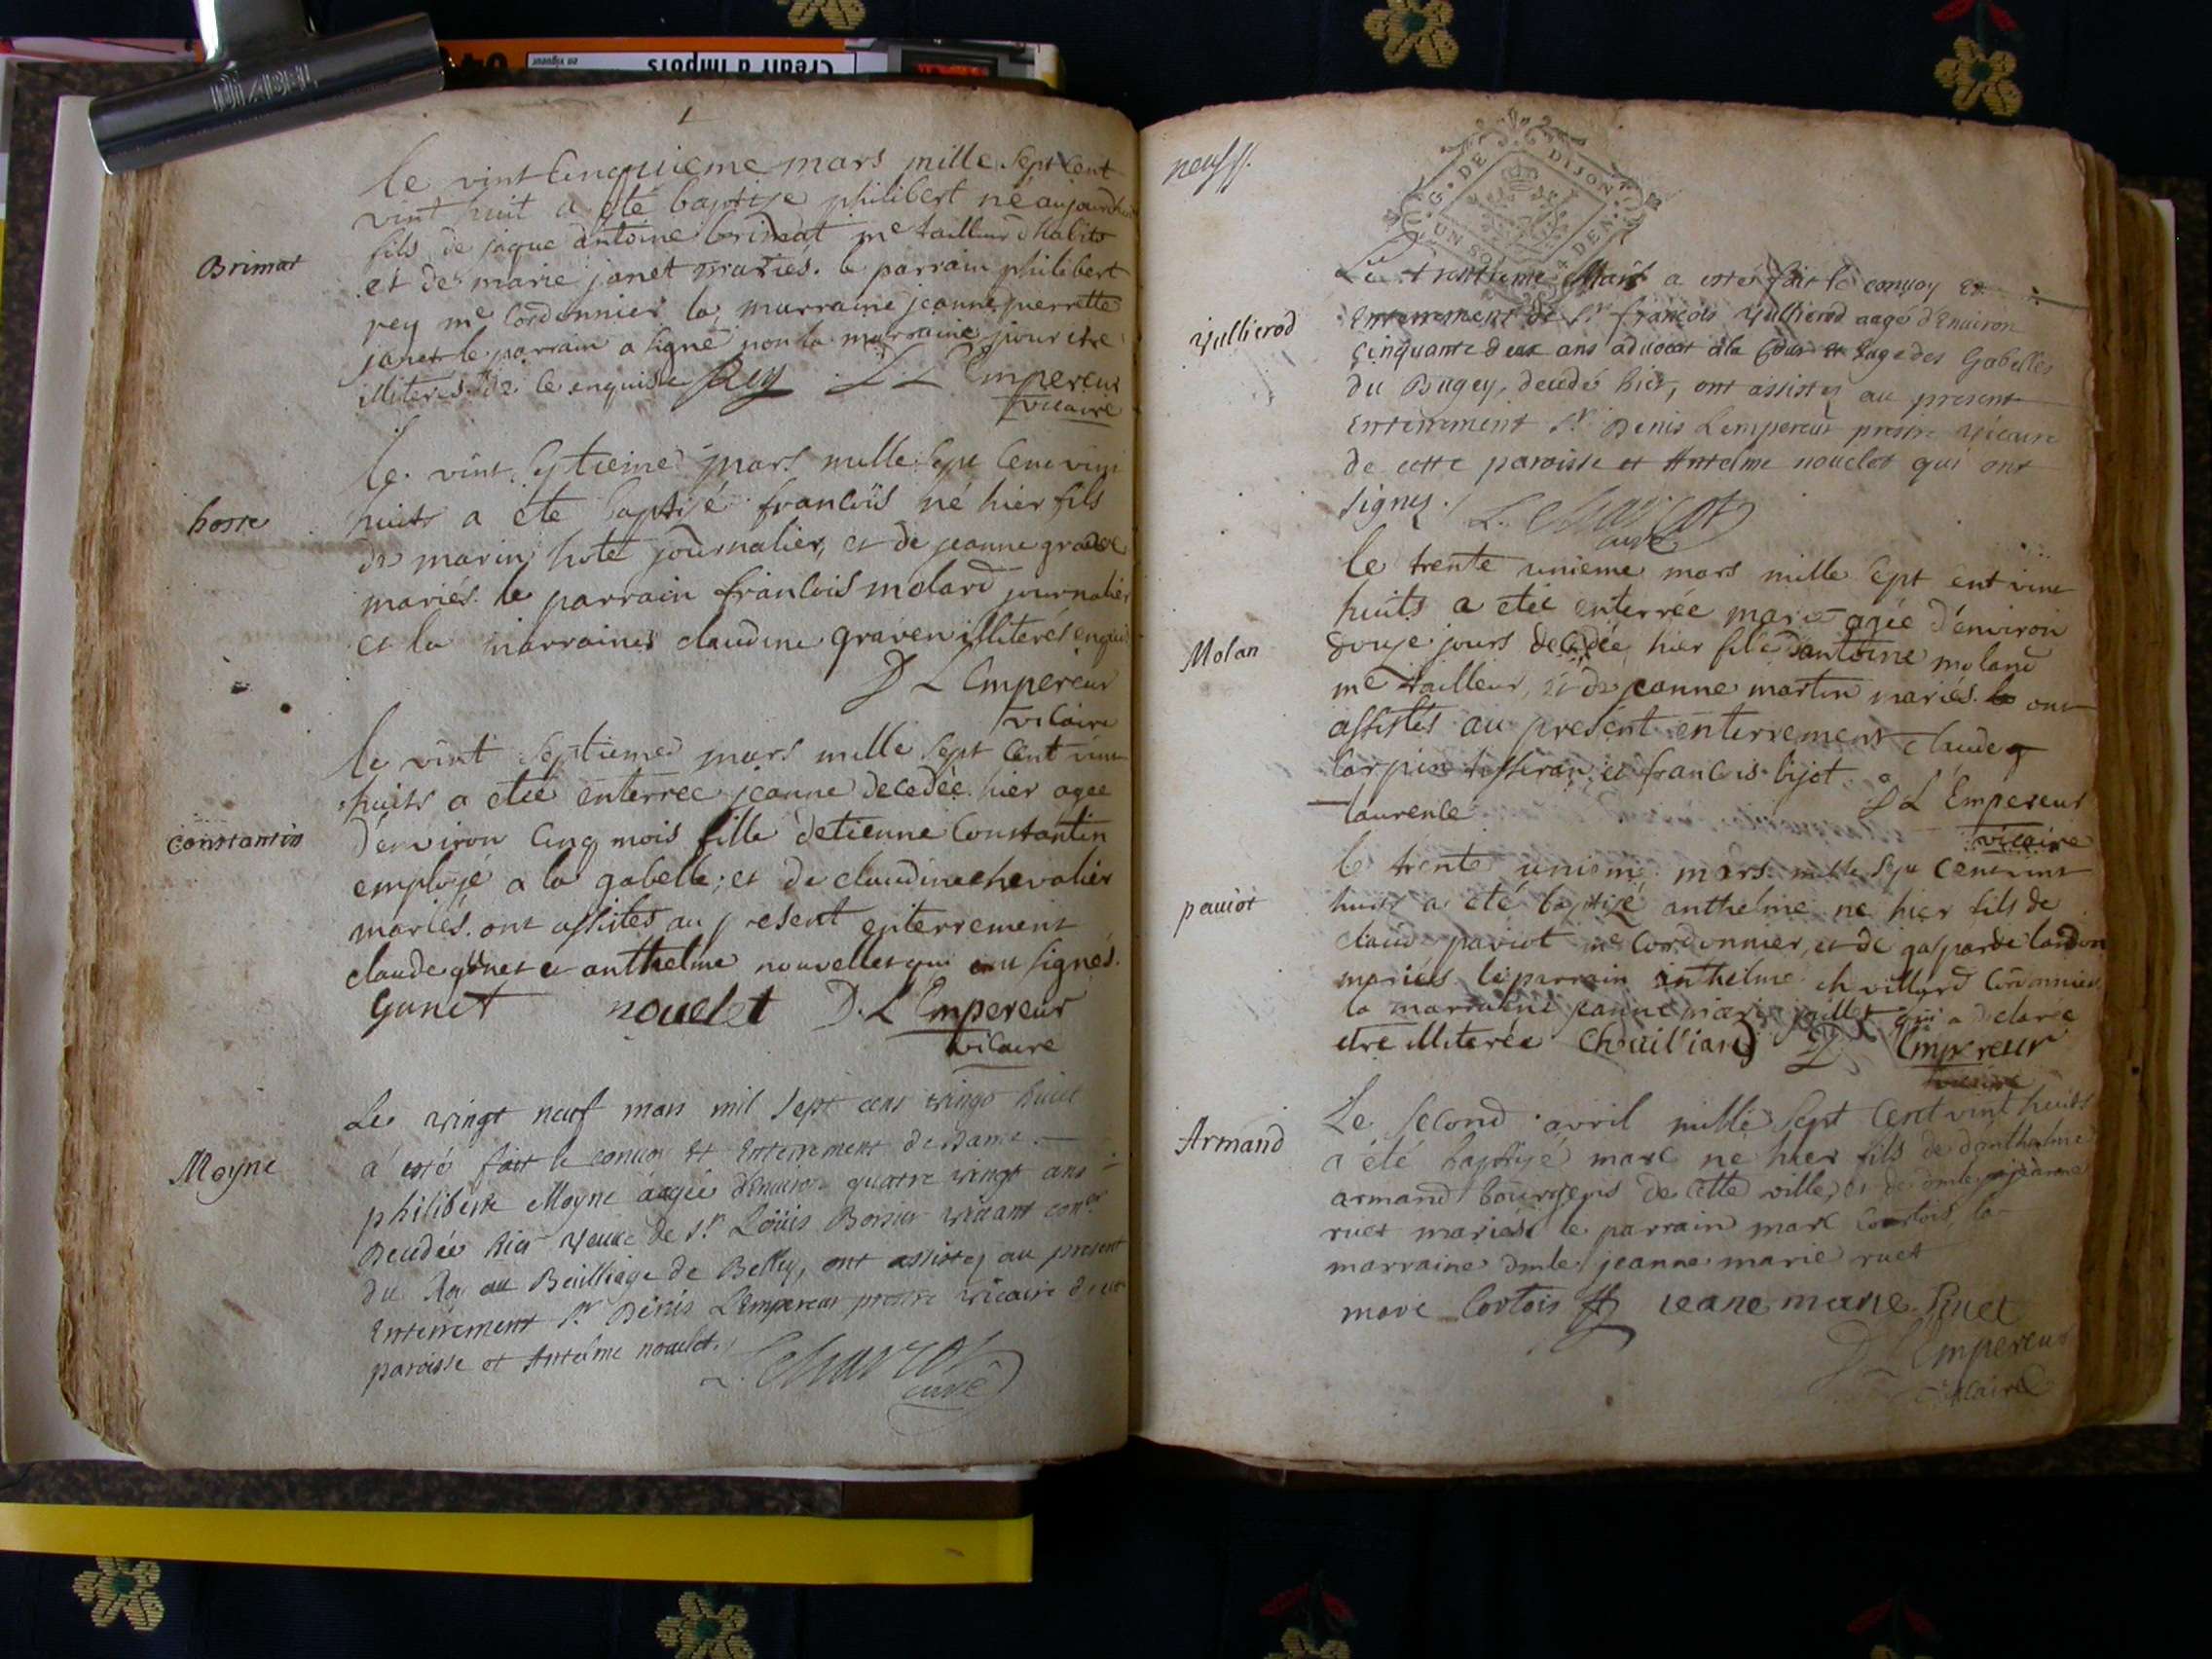 DIABEL
Credit d'impôts
en vigueur
le vint cinquieme mars mille sept cent
vint huit a été baptise philibert né aujourdhui
Brimat
fils de jaque antoine brimat me tailleur d habits
et de marie janet mariés. le parrain philibert
rey me cordonnier la marraine jeanne pierrette
janet le parrain a signé non la marraine pour etre
illiterés de ce enquise Rey D. L Empereur
vicaire
le vint septieme mars mille sept cent vint
hoste
huits a ete baptisé francois né hier fils
de marin hote journalier, et de jeanne graven
mariés. le parrain francois molard journalier
et la marraine claudine graven illiterés enquis
D L Empereur
vicaire
le vint septieme mars mille sept cent vint
huits a etée enterrée jeanne decedée hier agée
constantin
d'environ cinq mois fille detienne Constantin
employé a la gabelle; et de claudine chevalier
mariés. ont assistes au present enterrement
claude gunet et anthelme nouvellet qui ont signés.
Gunet nouelet D. L'Empereur
vicaire
Le vingt neuf mars mil sept cens vingt huict
a esté fait le convoy et Enterrement de dame
Moyne
philiberte Moyne aagée d'environ quatre vingt ans
Decedée hier veuve de Sr. Loüis Bonin vivant coner
du Roy au Bailliage de Belley, ont assistez au present
Enterrement Sr Denis L'Empereur prestre vicaire
paroisse et Antelme nouelet.
L. Charcot
curé
neuff.
G. DE DIJON
UN SOL DEN.
Le trentieme Mars a esté fait le convoy et
Vullierod
Enterrement de Sr. françois Vullierod aagé d'Environ
cinquante deux ans advocat a la Cour et Juge des Gabelles
du Bugey, decedé hier, ont assistez au present
Enterrement Sr. Denis Lempereur prestre vicaire
de cette paroisse et Antelme nouelet qui ont
signez. L. Charcot
curé
le trente unieme mars mille sept cent vint
huits a etée enterrée marie agée d'environ
Molan
douze jours decedée hier fille d'antoine moland
me tailleur, et de jeanne martin mariés. ont
assistés au present enterrement claude
carpin tisseran et francois bijot
laurence D L'Empereur
vicaire
le trente unieme mars mille sept cent vint
paviot
huits a été baptisé anthelme né hier fils de
claude paviot me Cordonnier, et de gasparde landon
mariés le parrain anthelme chvillard cordonnier
la marraine jeanne marie jaillet qui a declaré
etre illiterée Chouilliard D L Empereur
vicaire
Le second avril mille sept cent vint huits
Armand
a été baptisé marc né hier fils de danthelme
armand bourgeois de cette ville, et de dmlle jeanne
ruet mariés le parrain marc Cortois, la
marraine dmlle jeanne marie ruet
marc Cortois jeane marie Ruet
D L Empereur
vicaire